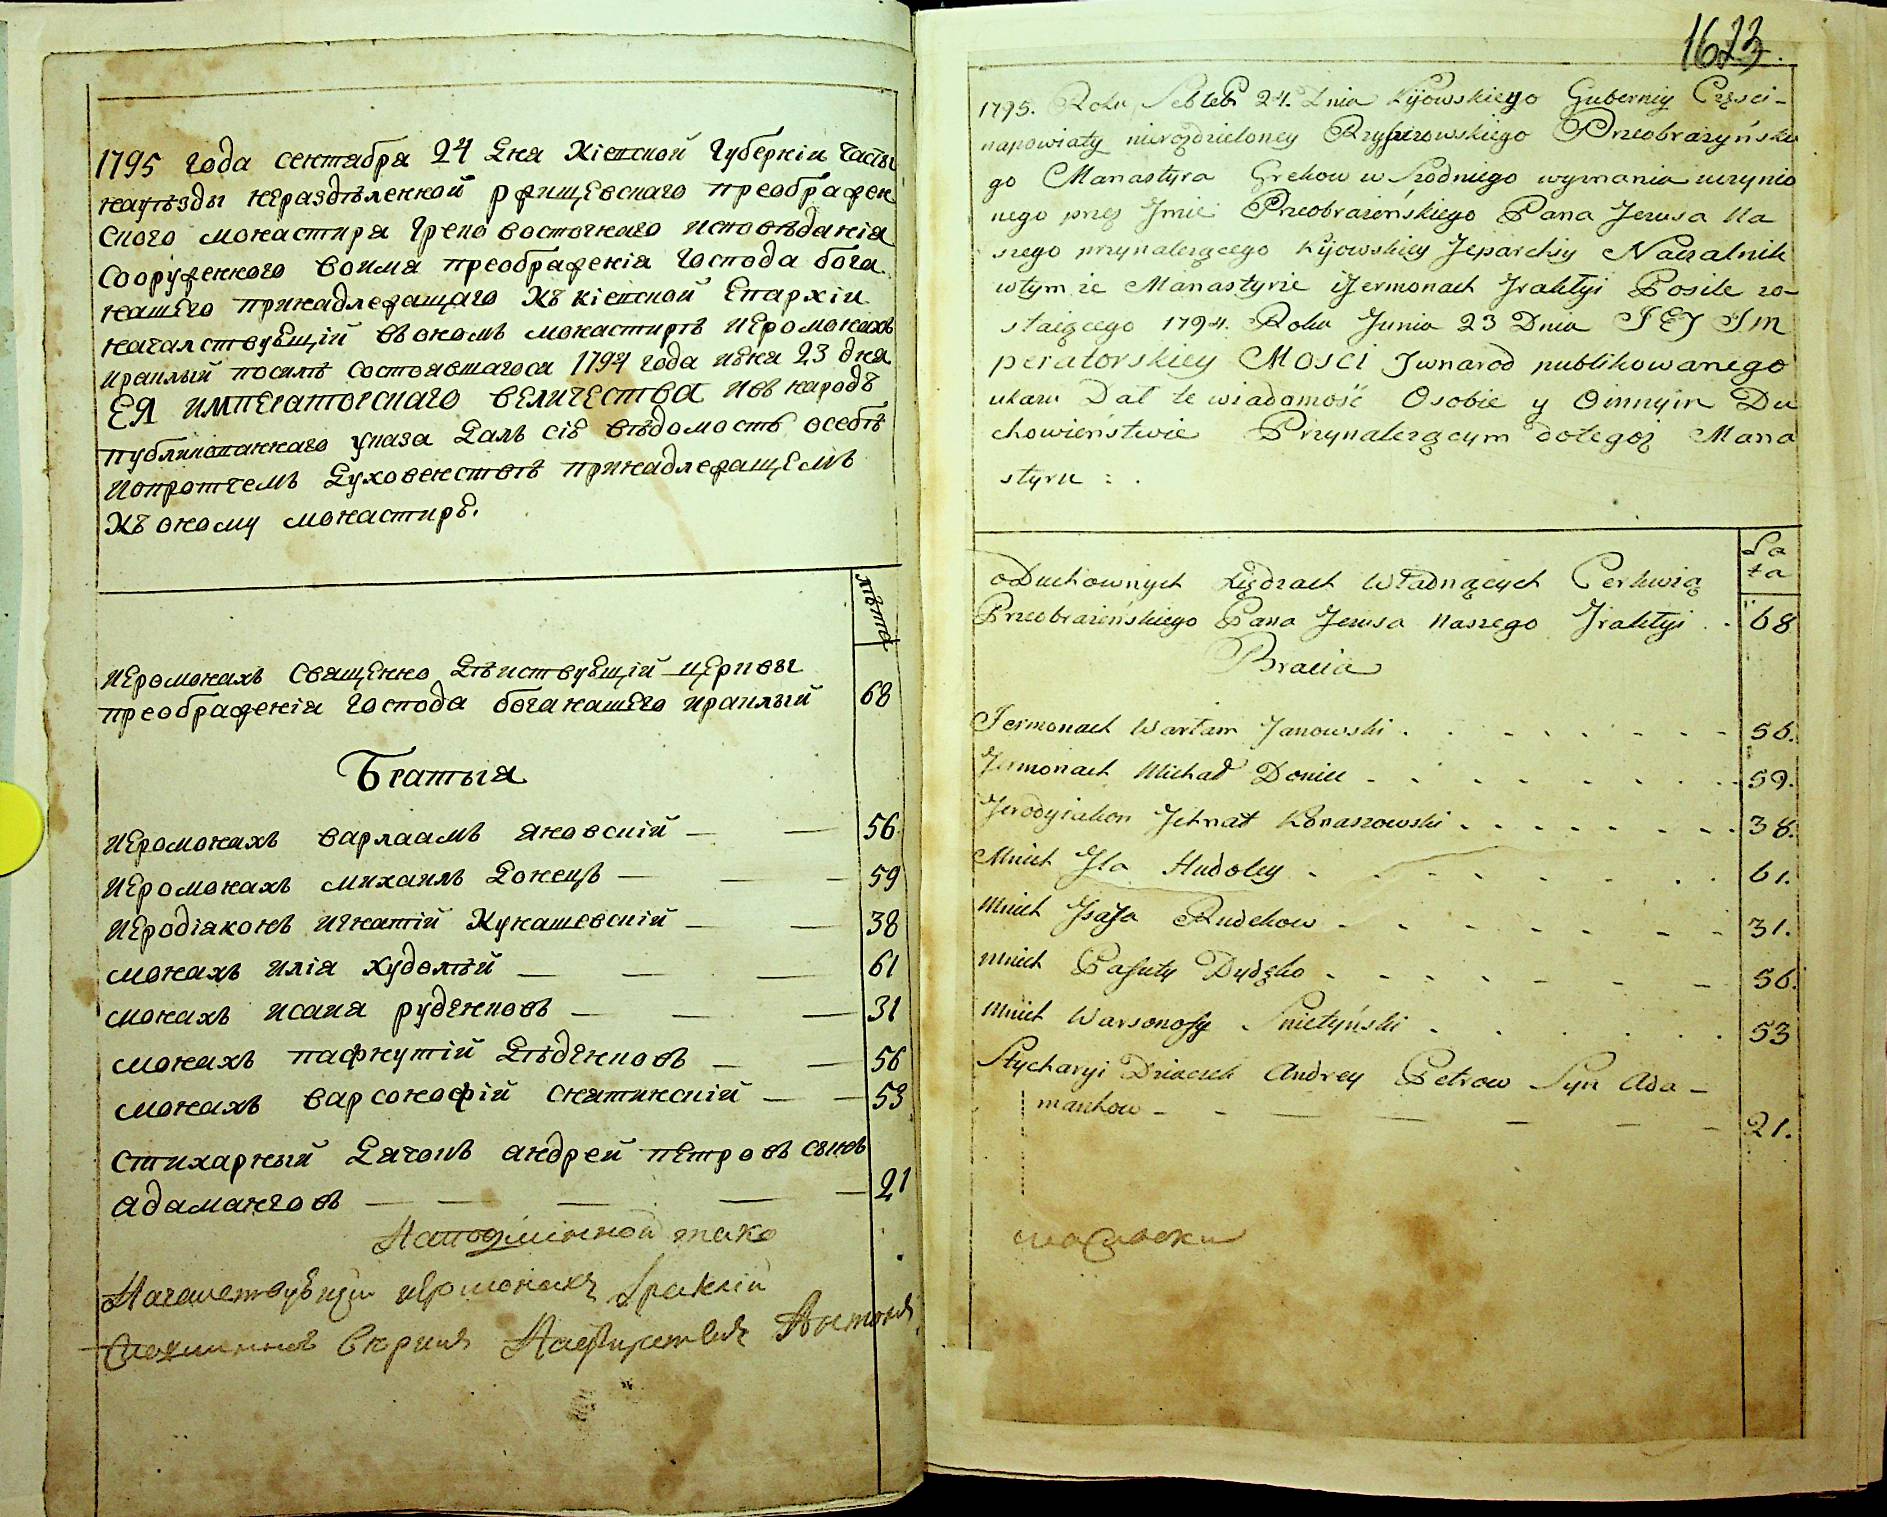 1795 года сентября 24 дня Кіевской губерніи части
науѣзды нераздѣленной ржищевскаго преображен
ского монастиря греко восточнаго исповѣданія
сооруженного воимя преображенія господа бога
нашего принадлежащаго Къ кіевской епархіи
началствуѣщій въ ономъ монастирѣ иеромонахъ
ираклый посилѣ состоявшагося 1794 года июня 23 дня
ЕЯ императорскаго величества ивъ народъ
публикованнаго указа далъ сію вѣдомость осебѣ
ипротчемъ духовенствѣ принадлежащемъ
Къ оному монастирю.
лѣта
иеромонахъ священно дѣиствуѣщій церквы
преображенія господа бога нашего ираклый 68
Братыя
иеромонахъ варлаамъ яновскій — — 56
иеромонахъ михаилъ донецъ — — — 59
иеродіаконъ игнатій Кунашевскій — — 38
монахъ илія худолѣй — — — 61
монахъ исаия руденковъ — — — 31
монахъ пафнутій дѣденковъ — — 56
монахъ варсонофій снятинскій — — 53
стихарный дячокъ андрей петровъ сынъ
адаманговъ — — — — — 21
тако
иеромонахъ Іраклій
1623
1795. Roku Sebteb 24. Dnia Kijowskiego Guberniy Częsci-
napowiaty nierozdzieloney Rzyszczowskiego Przeobrazyńsko
go Manastyra Grekow wSzodniego wyznania uczynio
nego przez Jmie Przeobrazeńskiego Pana Jezusa Na
szego przynalezącego Kijowskiey Jeparchiy Naczalnik
wtym ze Manastyrze iJermonach Jraklyi Posile zo-
staiącego 1794. Roku Junia 23 Dnia JEJ Jm
peratorskiey Mosci Jwnarod publikowanego
ukazu Dał te wiadomość Osobie y Oinnym Du
chowieństwie Przynalezącym dotegoz Mana
styru : .
La
ta
oDuchownych Xiędzach Władnących Cerkwią
Przeobrazeńskiego Pana Jezusa Naszego Jraklyi . . 68
Bracia
Jermonach Warłam Janowski . . . - - - - - 56.
Jermonach Michał Doniec - - - - - - - - 59.
Jerodyiakon Jehnat Konaszowski . - - - - - - 38.
Mnich Jla Hudoley . . - - - - - . . 61.
Mnich Jsaja Rudekow - - - - - - - - 31.
Mnich Pafnty Dydęko - - - - - - - - 56.
Mnich Warsonofy Snietyński . . . . . . . 53
Stycharyi Dziaczek Andrey Petrow Syn Ada-
mankow - - - - - - - - 21.